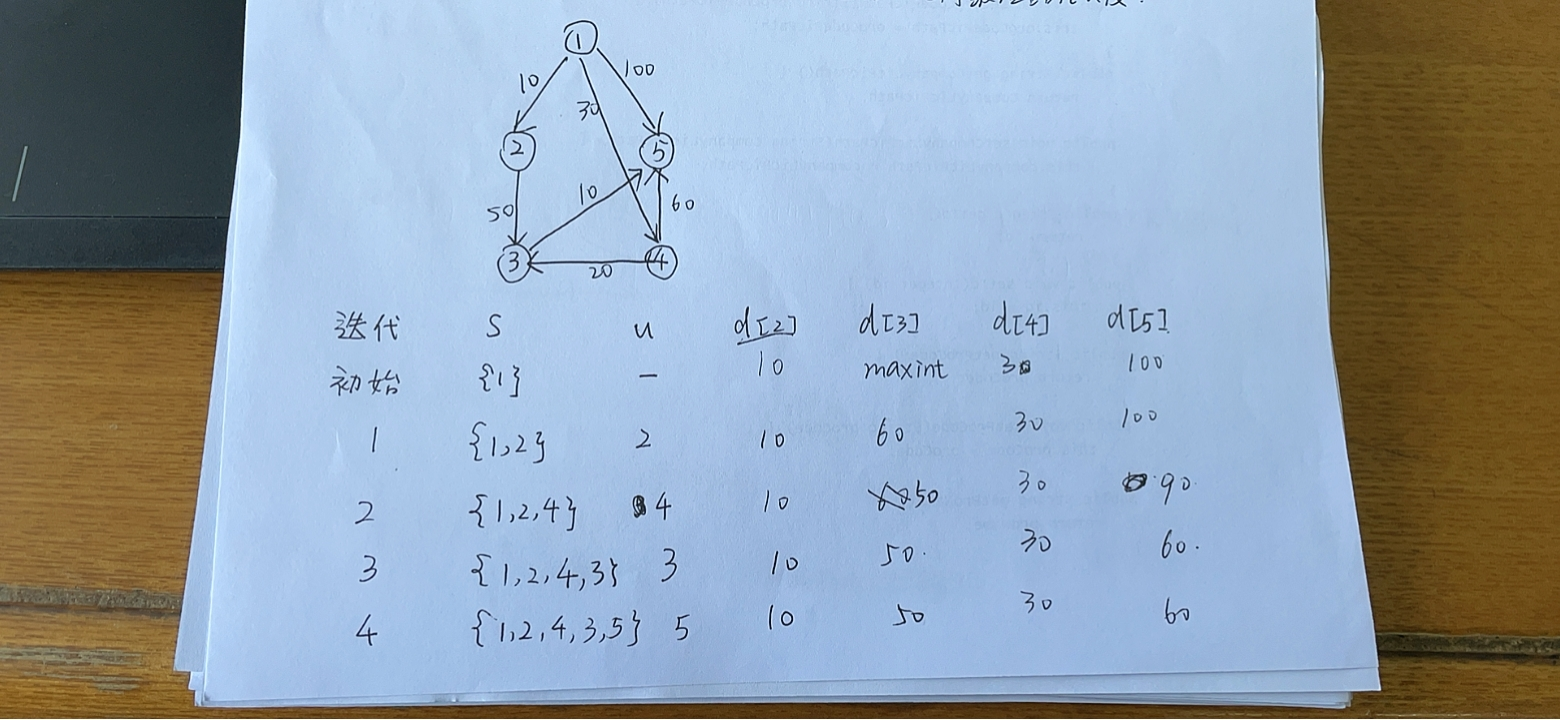 1
10 100
30
2 5
10
50 60
3 4
20
迭代 S u d[2] d[3] d[4] d[5]
初始 {1} — 10 maxint 30 100
1 {1,2} 2 10 60 30 100
2 {1,2,4} 4 10 50 30 90
3 {1,2,4,3} 3 10 50 30 60
4 {1,2,4,3,5} 5 10 50 30 60